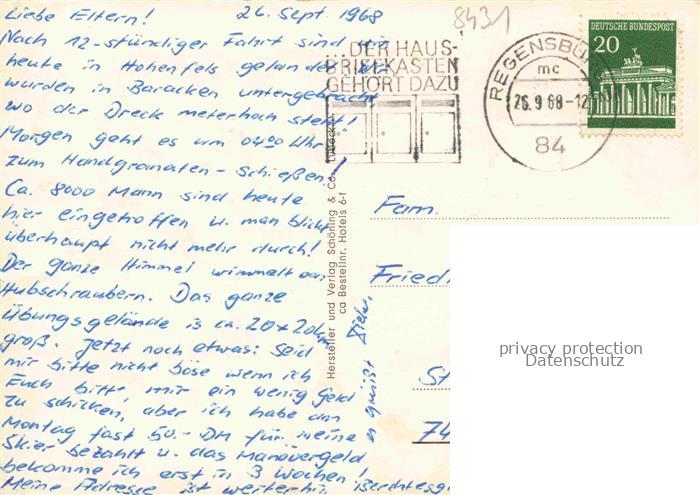 Liebe Eltern! 26. Sept. 1968
Nach 12-stündiger Fahrt sind wir
heute in Hohenfels gelandet. Wir
wurden in Baracken untergebracht
wo der Dreck meterhoch steht!
Morgen geht es um 0400 Uhr
zum Handgranaten-Schießen!
Ca. 8000 Mann sind heute
hier eingetroffen u. man blickt
überhaupt nicht mehr durch!
Der ganze Himmel wimmelt von
Hubschraubern. Das ganze
Übungsgelände is ca. 20x20km
groß. Jetzt noch etwas: Seid
mir bitte nicht böse wenn ich
Euch bitte mir ein wenig Geld
zu schicken, aber ich habe am
Montag fast 50.- DM für meine
Skier bezahlt u. das Manövergeld
bekomme ich erst in 3 Wochen!
Meine Adresse ist weiterhin Berchtesg
es grüßt
8431
...DER HAUS-
BRIEFKASTEN
GEHÖRT DAZU
REGENSBURG
mc
26.9.68-12
84
DEUTSCHE BUNDESPOST
20
Hersteller und Verlag Schöning & Co.
Lübeck
ca Bestellnr. Hofels 6-f
Fam.
Friedr
St
74
privacy protection
Datenschutz